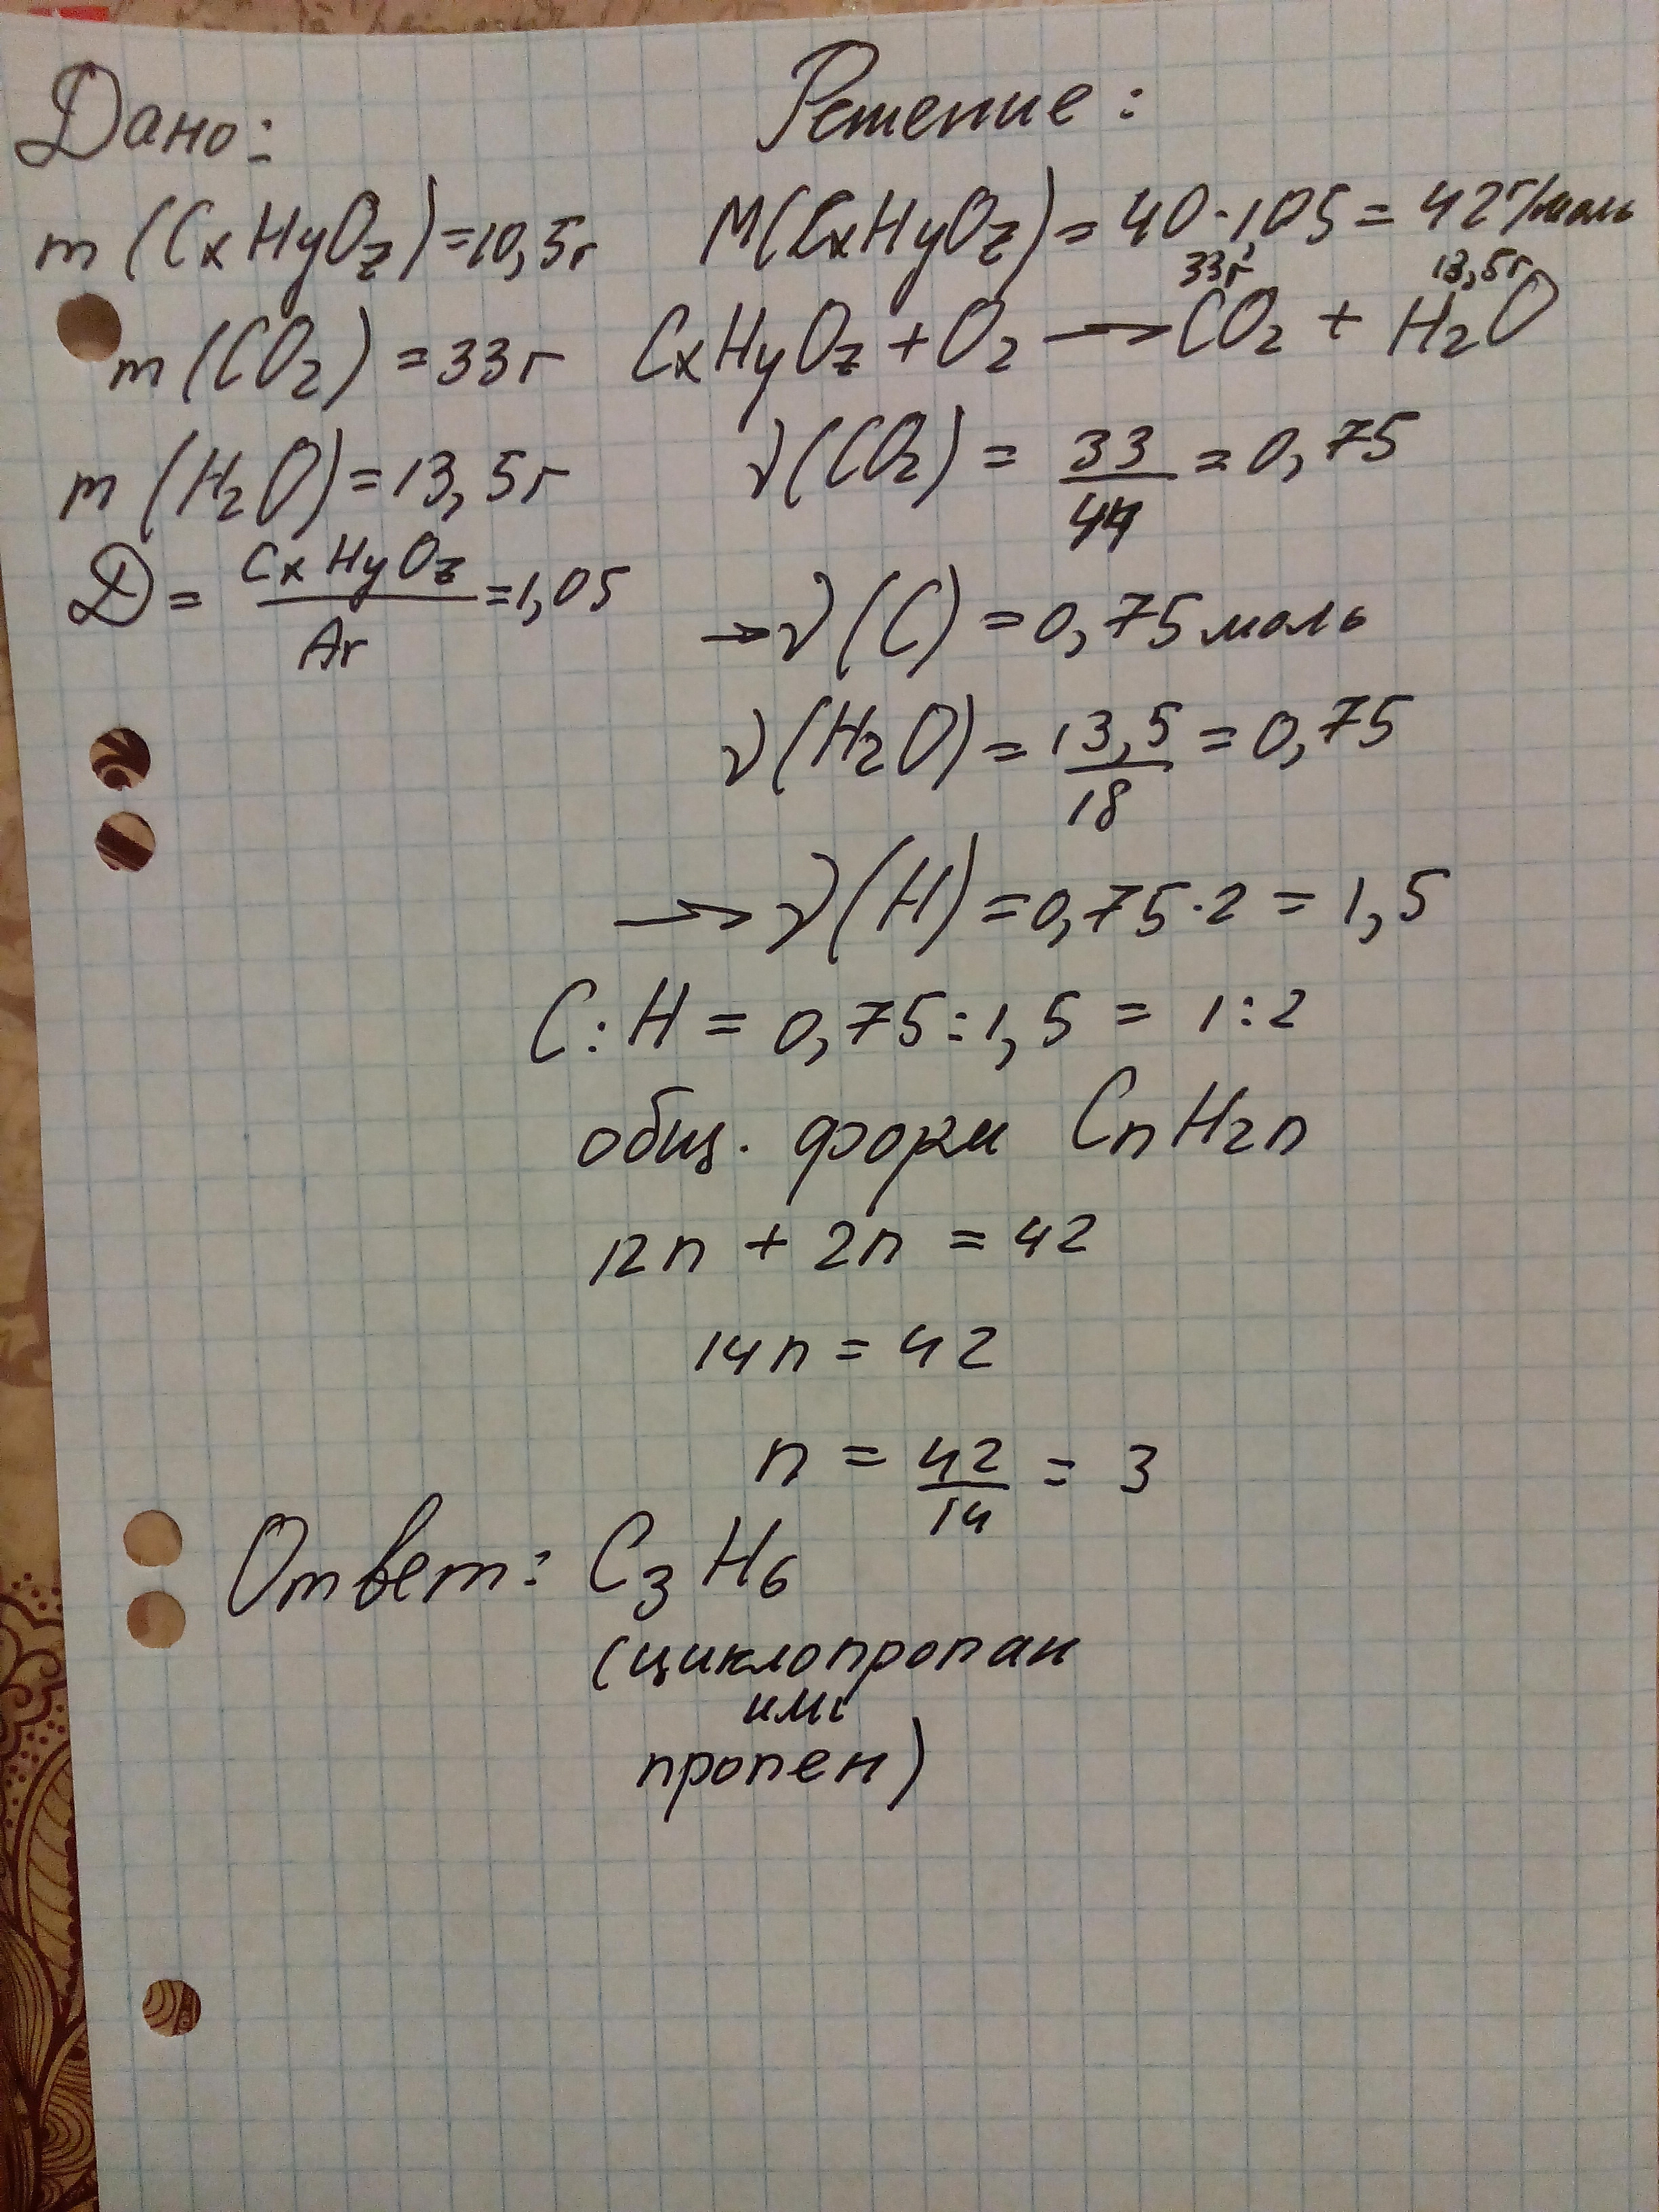 Дано:
m (CxHyOz) = 10,5г
m (CO2) = 33г
m (H2O) = 13,5г
D = CxHyOz / Ar = 1,05
Решение:
M(CxHyOz) = 40 · 1,05 = 42г/моль
33г 13,5г
CxHyOz + O2 → CO2 + H2O
ν(CO2) = 33 / 44 = 0,75
→ ν(C) = 0,75 моль
ν(H2O) = 13,5 / 18 = 0,75
→ ν(H) = 0,75 · 2 = 1,5
C : H = 0,75 : 1,5 = 1 : 2
общ. форм CnH2n
12n + 2n = 42
14n = 42
n = 42 / 14 = 3
Ответ: C3H6
(циклопропан
или
пропен)